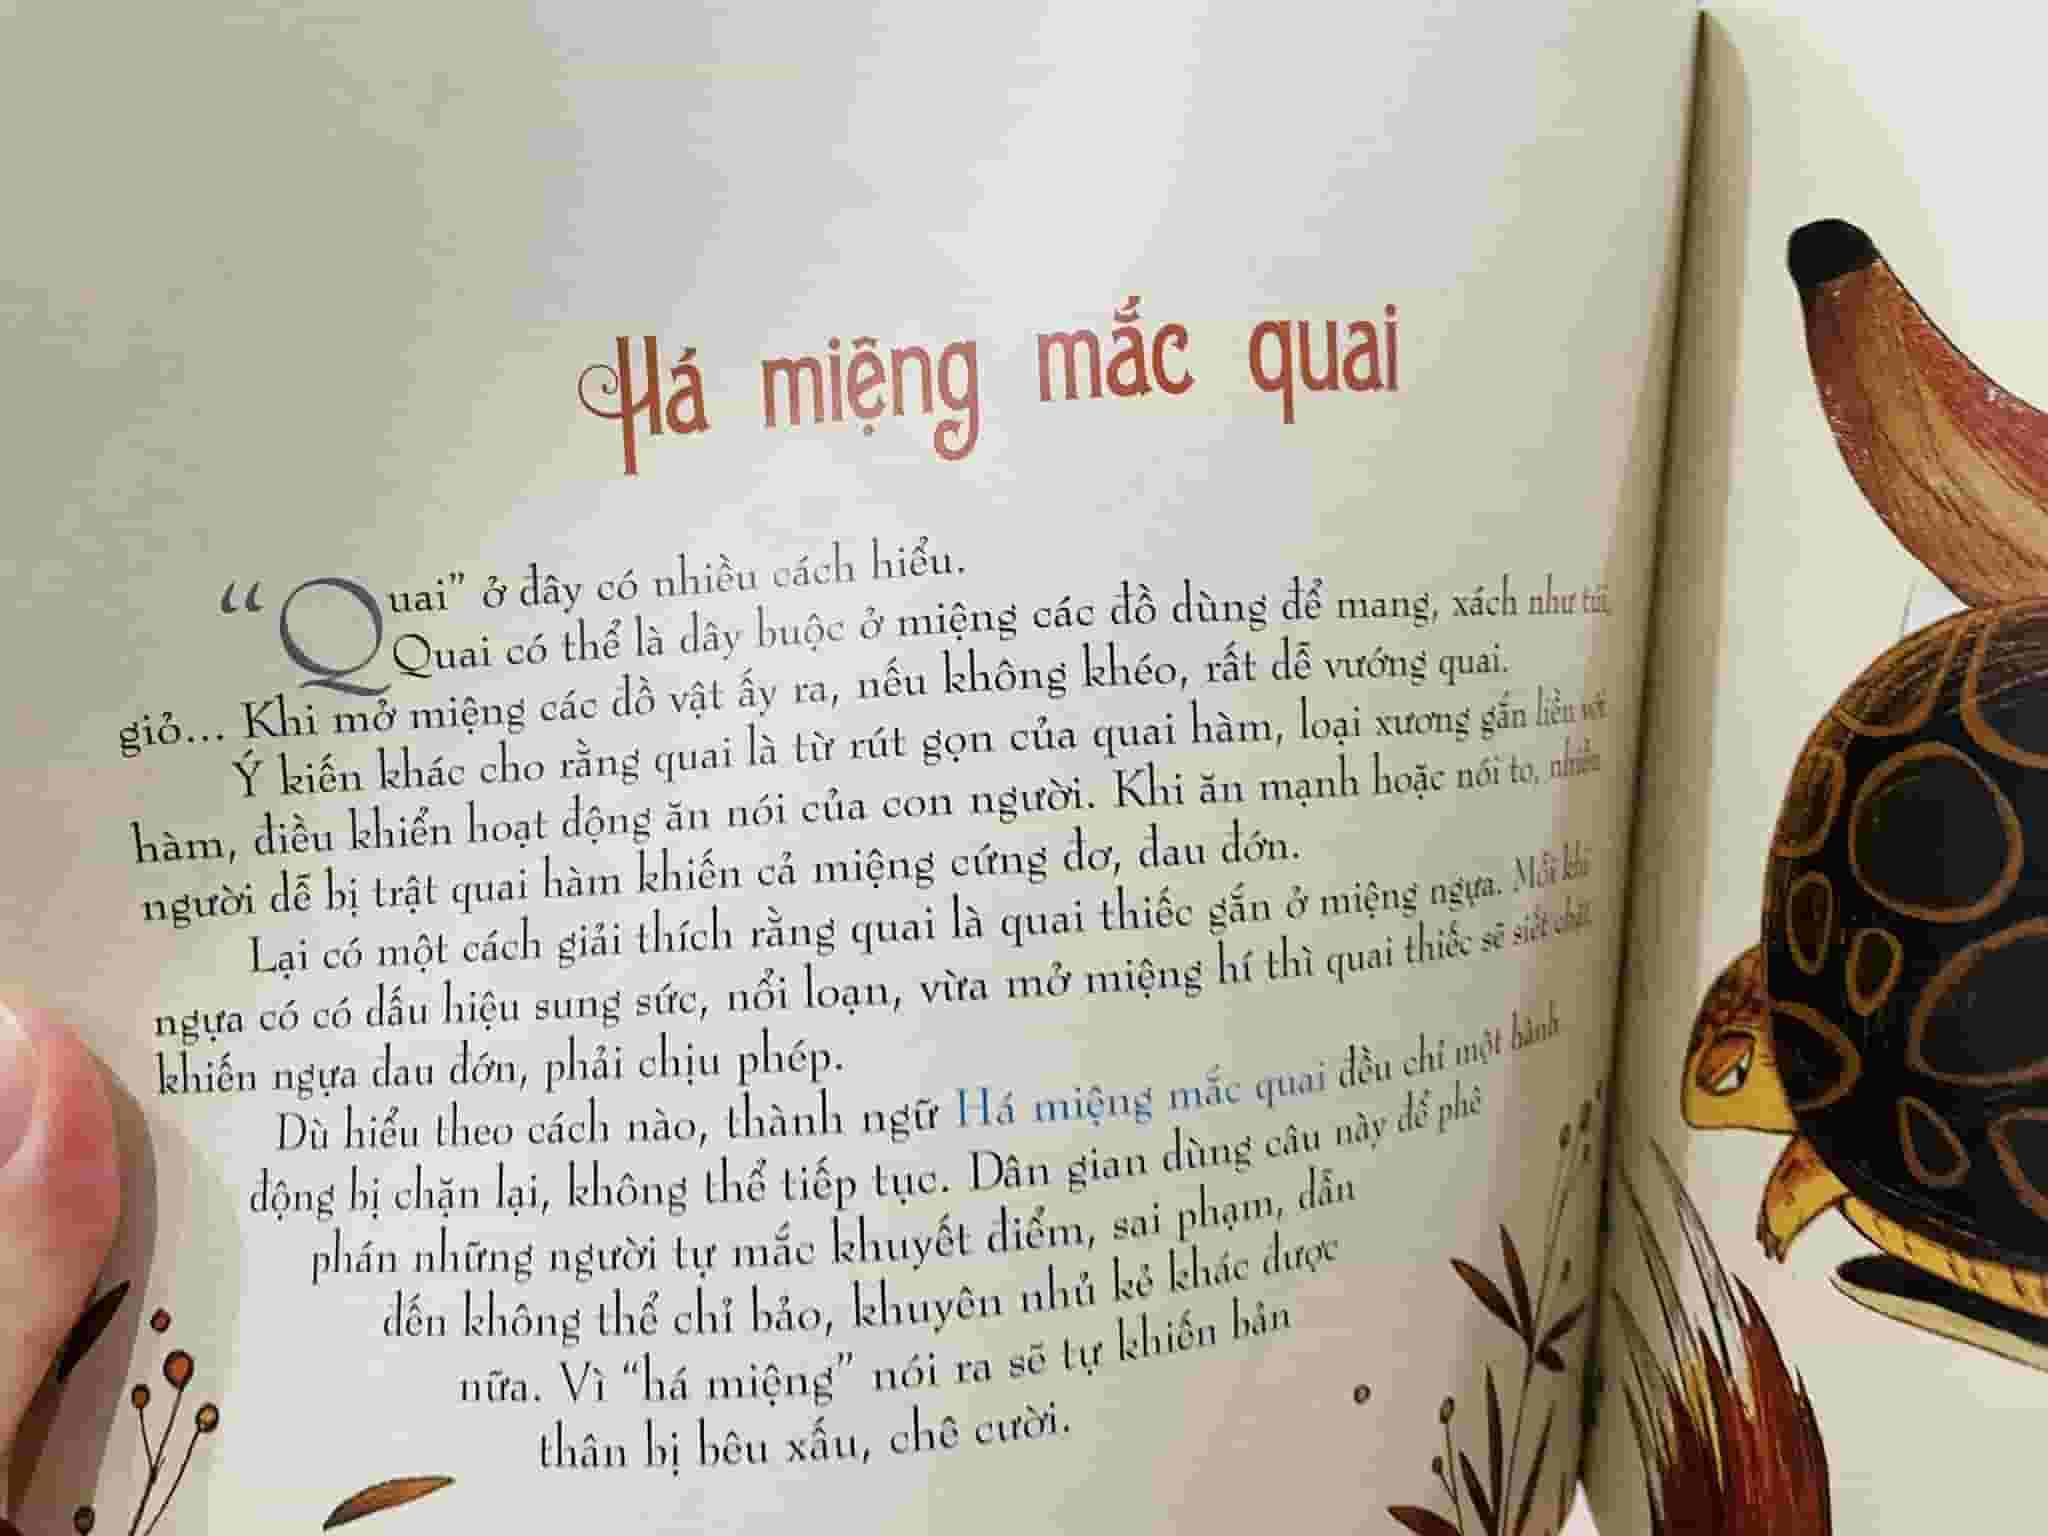 Há miệng mắc quai
“Quai” ở đây có nhiều cách hiểu.
Quai có thể là dây buộc ở miệng các đồ dùng để mang, xách như túi,
giỏ... Khi mở miệng các đồ vật ấy ra, nếu không khéo, rất dễ vướng quai.
Ý kiến khác cho rằng quai là từ rút gọn của quai hàm, loại xương gắn liền với
hàm, điều khiển hoạt động ăn nói của con người. Khi ăn mạnh hoặc nói to, nhiều
người dễ bị trật quai hàm khiến cả miệng cứng đơ, đau đớn.
Lại có một cách giải thích rằng quai là quai thiếc gắn ở miệng ngựa. Mỗi khi
ngựa có có dấu hiệu sung sức, nổi loạn, vừa mở miệng hí thì quai thiếc sẽ siết chặt
khiến ngựa đau đớn, phải chịu phép.
Dù hiểu theo cách nào, thành ngữ Há miệng mắc quai đều chỉ một hành
động bị chặn lại, không thể tiếp tục. Dân gian dùng câu này để phê
phán những người tự mắc khuyết điểm, sai phạm, dẫn
đến không thể chỉ bảo, khuyên nhủ kẻ khác được
nữa. Vì “há miệng” nói ra sẽ tự khiến bản
thân bị bêu xấu, chê cười.